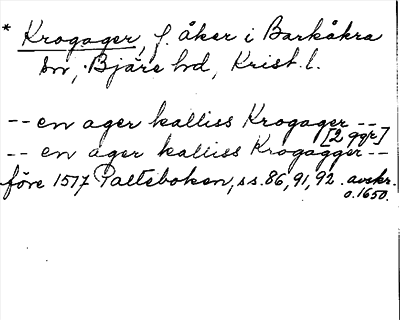 * Krogager, f. åker i Barkåkra
sn, Bjäre hd, Krist. l.
-- en ager kalliss Krogager --
[2 ggr]
-- en ager kalliss Krogagger --
före 1517 Palteboken, ss. 86, 91, 92. avskr.
o. 1650.